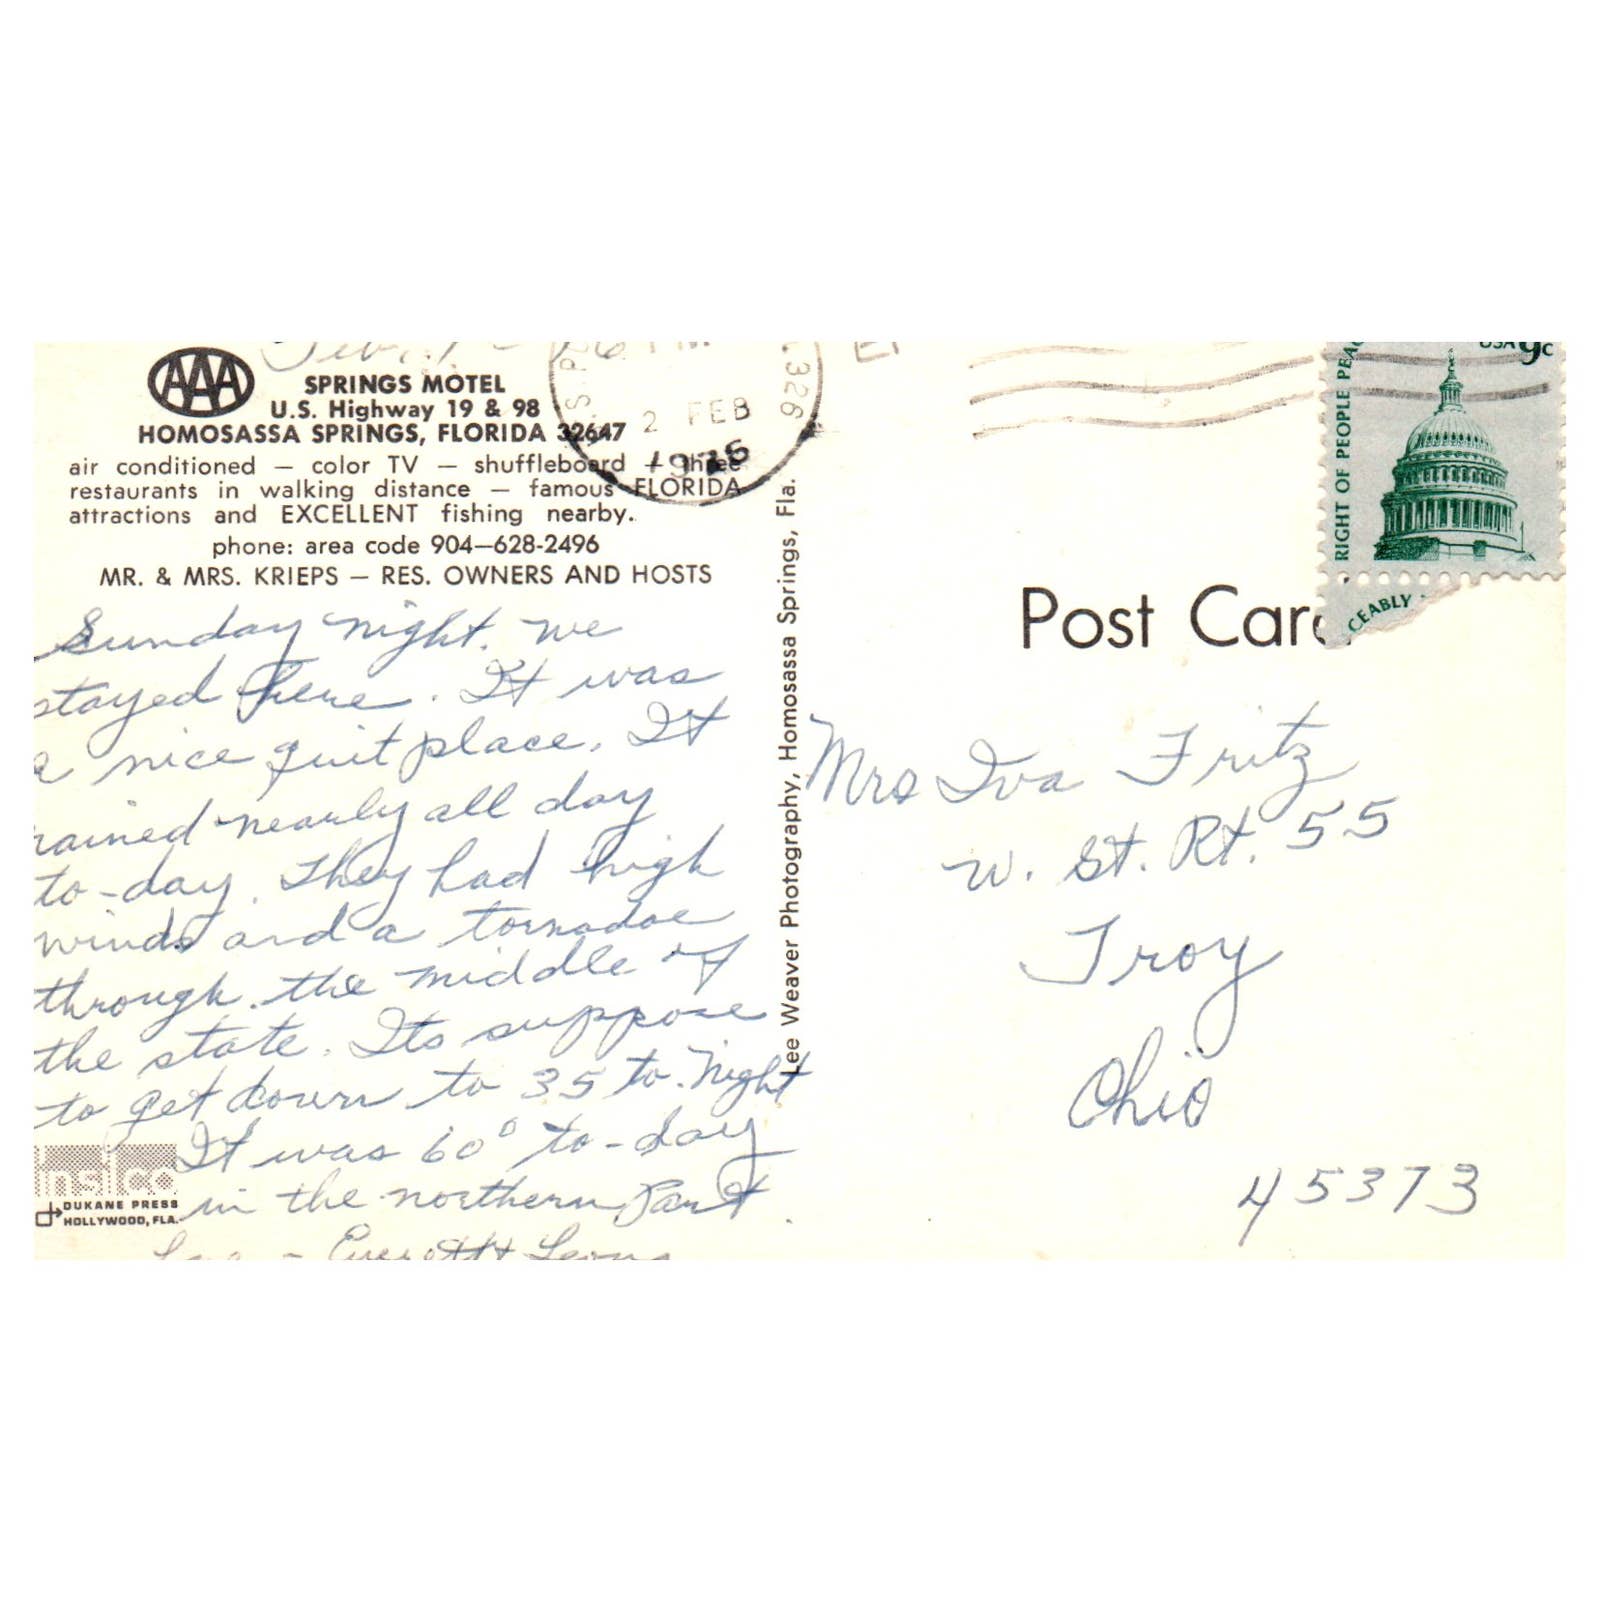 AAA
SPRINGS MOTEL
U.S. Highway 19 & 98
HOMOSASSA SPRINGS, FLORIDA 32647
air conditioned — color TV — shuffleboard — three
restaurants in walking distance — famous FLORIDA
attractions and EXCELLENT fishing nearby.
phone: area code 904—628-2496
MR. & MRS. KRIEPS — RES. OWNERS AND HOSTS
Sunday night. we
stayed here. It was
a nice quit place. It
rained nearly all day
to-day. They had high
winds and a tornadoe
through the middle of
the state. Its suppose
to get down to 35 to-night
It was 60° to-day
in the northern Part.
Everett
insico
DUKANE PRESS
HOLLYWOOD, FLA.
Lee Weaver Photography, Homosassa Springs, Fla.
326
PM
2 FEB
1976
USA 9c
RIGHT OF PEOPLE PEACEABLY
Post Card
Mrs Iva Fritz
W. St. Rt. 55
Troy
Ohio
45373